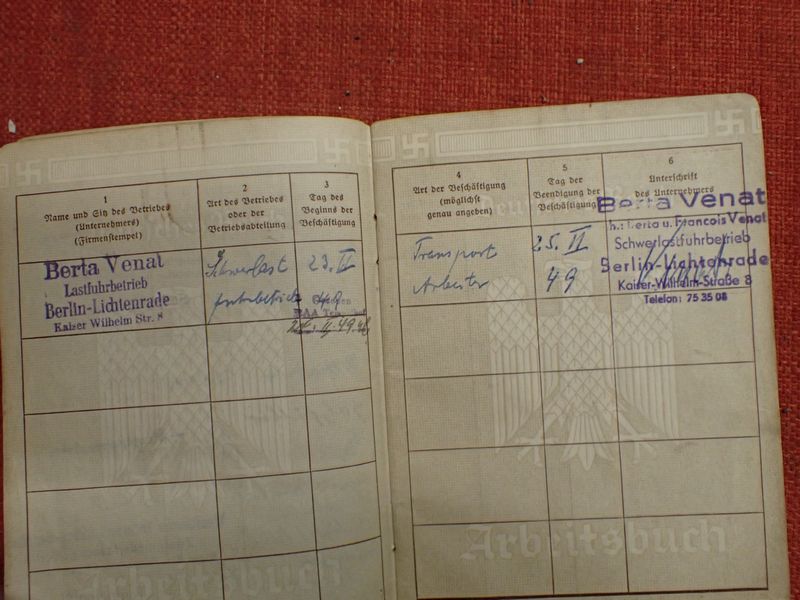 1
Name und Sitz des Betriebes
(Unternehmers)
(Firmenstempel)
2
Art des Betriebes
oder der
Betriebsabteilung
3
Tag des
Beginns der
Beschäftigung
Berta Venat
Lastfuhrbetrieb
Berlin-Lichtenrade
Kaiser Wilhelm Str. 8
Schwerlast
fuhrbetrieb
23. II
49
Arbeitsbuch
4
Art der Beschäftigung
(möglichst
genau angeben)
5
Tag der
Beendigung der
Beschäftigung
6
Unterschrift
des Unternehmers
Transport
Arbeiter
25. II
49
Berta Venat
Jnh.: Berta u. Francois Venat
Schwerlastfuhrbetrieb
Berlin-Lichtenrade
Kaiser-Wilhelm-Straße 8
Telefon: 75 35 08
Arbeitsbuch